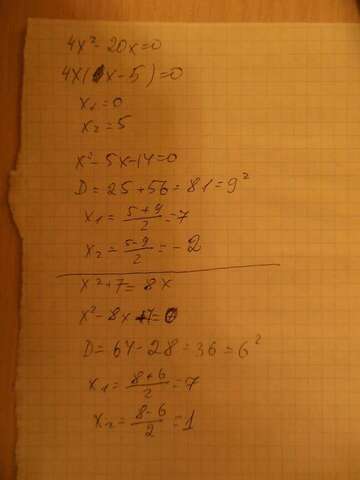 4x² - 20x = 0
4x(x - 5) = 0
x₁ = 0
x₂ = 5
x² - 5x - 14 = 0
D = 25 + 56 = 81 = 9²
x₁ = (5+9)/2 = 7
x₂ = (5-9)/2 = -2
x² + 7 = 8x
x² - 8x + 7 = 0
D = 64 - 28 = 36 = 6²
x₁ = (8+6)/2 = 7
x₂ = (8-6)/2 = 1